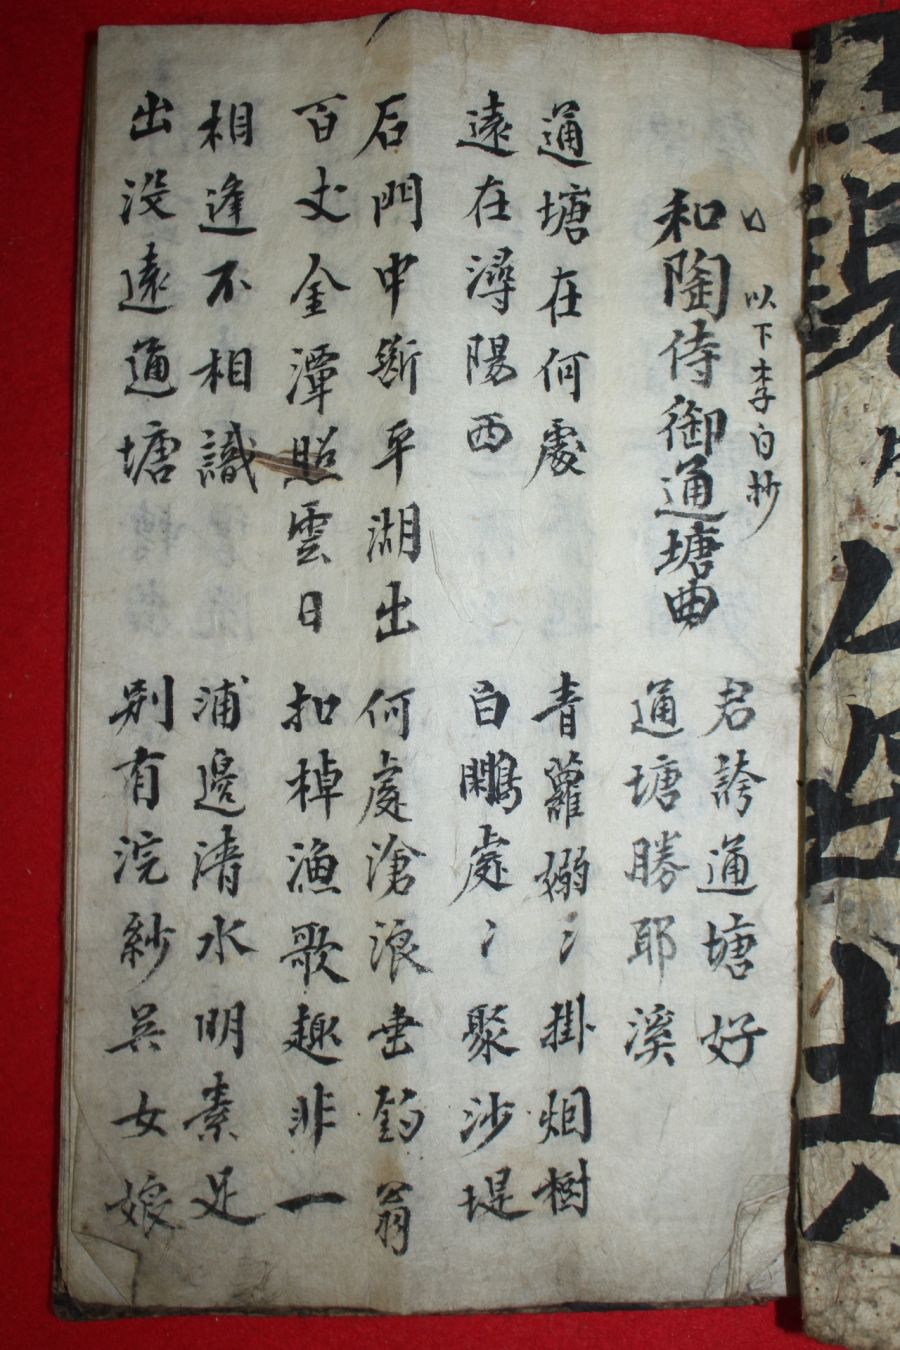 以下李白抄
和陶待御通塘曲
君誇通塘好
通塘勝耶溪
通塘在何處
遠在潯陽西
青蘿嫋〻掛烟樹
白鷴處〻聚沙堤
石門中斷平湖出
百丈金潭照雲日
何處滄浪垂釣翁
扣棹漁歌趣非一
相逢不相識
出没遠通塘
浦邊清水明素足
别有浣紗吳女娘